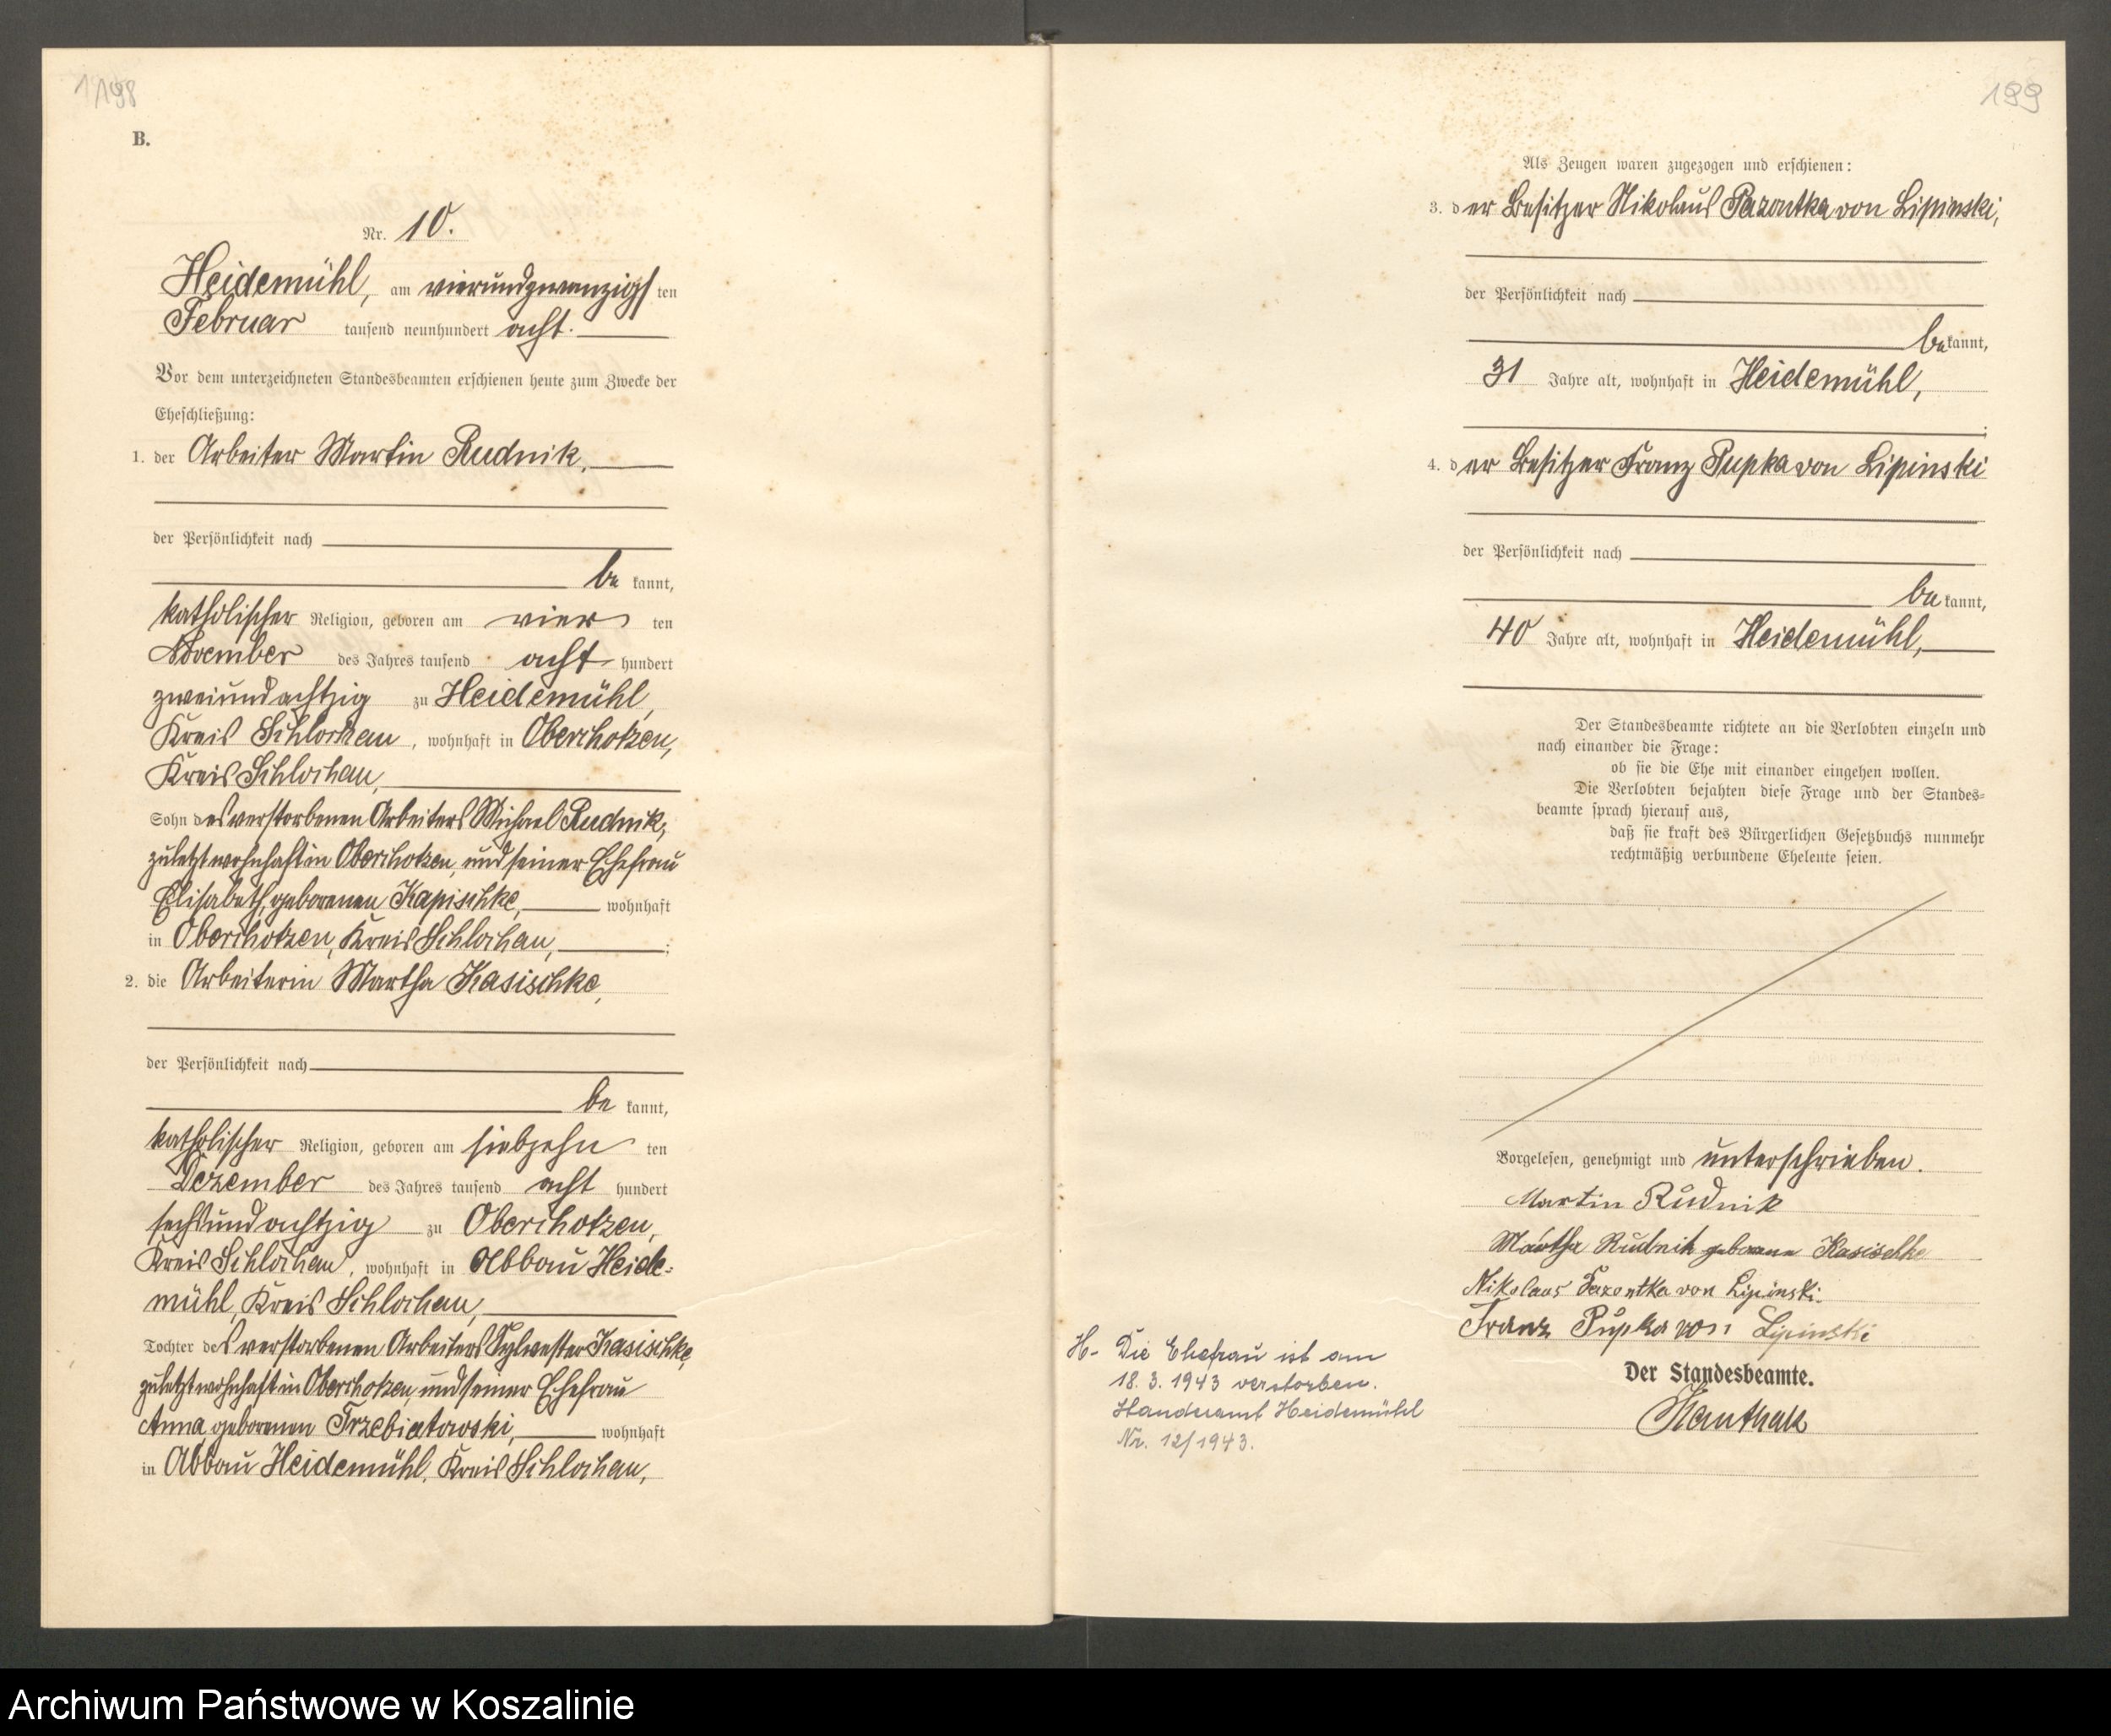 1198
B.
Nr. 10.
Heidemühl, am vierundzwanzigs ten
Februar tausend neunhundert acht.
Vor dem unterzeichneten Standesbeamten erschienen heute zum Zwecke der
Eheschließung:
1. der Arbeiter Martin Rudnik,
der Persönlichkeit nach
be kannt,
katholischer Religion, geboren am vier ten
November des Jahres tausend acht hundert
zweiundachtzig zu Heidemühl,
Kreis Schlochau, wohnhaft in Oberchotzen,
Kreis Schlochau,
Sohn des verstorbenen Arbeiters Michael Rudnik,
zuletzt wohnhaft in Oberchotzen, und seiner Ehefrau
Elisabeth, geborenen Kapischke, wohnhaft
in Oberchotzen, Kreis Schlochau, ;
2. die Arbeiterin Martha Kasischke,
der Persönlichkeit nach
be kannt,
katholischer Religion, geboren am siebzehn ten
Dezember des Jahres tausend acht hundert
sechsundachtzig zu Oberchotzen,
Kreis Schlochau, wohnhaft in Abbau Heide-
mühl, Kreis Schlochau,
Tochter des verstorbenen Arbeiters Sylvester Kasischke,
zuletzt wohnhaft in Oberchotzen, und seiner Ehefrau
Anna, geborenen Trzebiatowski, wohnhaft
in Abbau Heidemühl, Kreis Schlochau,
199
Als Zeugen waren zugezogen und erschienen:
3. der Besitzer Nikolaus Pazontka von Lipinski,
der Persönlichkeit nach
bekannt,
31 Jahre alt, wohnhaft in Heidemühl,
;
4. der Besitzer Franz Pupka von Lipinski
der Persönlichkeit nach
be kannt,
40 Jahre alt, wohnhaft in Heidemühl,
Der Standesbeamte richtete an die Verlobten einzeln und
nach einander die Frage:
ob sie die Ehe mit einander eingehen wollen.
Die Verlobten bejahten diese Frage und der Standes-
beamte sprach hierauf aus,
daß sie kraft des Bürgerlichen Gesetzbuchs nunmehr
rechtmäßig verbundene Eheleute seien.
Vorgelesen, genehmigt und unterschrieben.
Martin Rudnik
Martha Rudnik geborene Kasischke
Nikolaus Pazontka von Lipinski.
Franz Pupka von Lipinski
Der Standesbeamte.
H. Die Ehefrau ist am
18. 3. 1943 verstorben.
Standesamt Heidemühl
Nr. 12/1943.
Archiwum Państwowe w Koszalinie